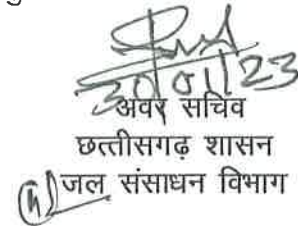 30/01/23
अवर सचिव
छत्तीसगढ़ शासन
जल संसाधन विभाग